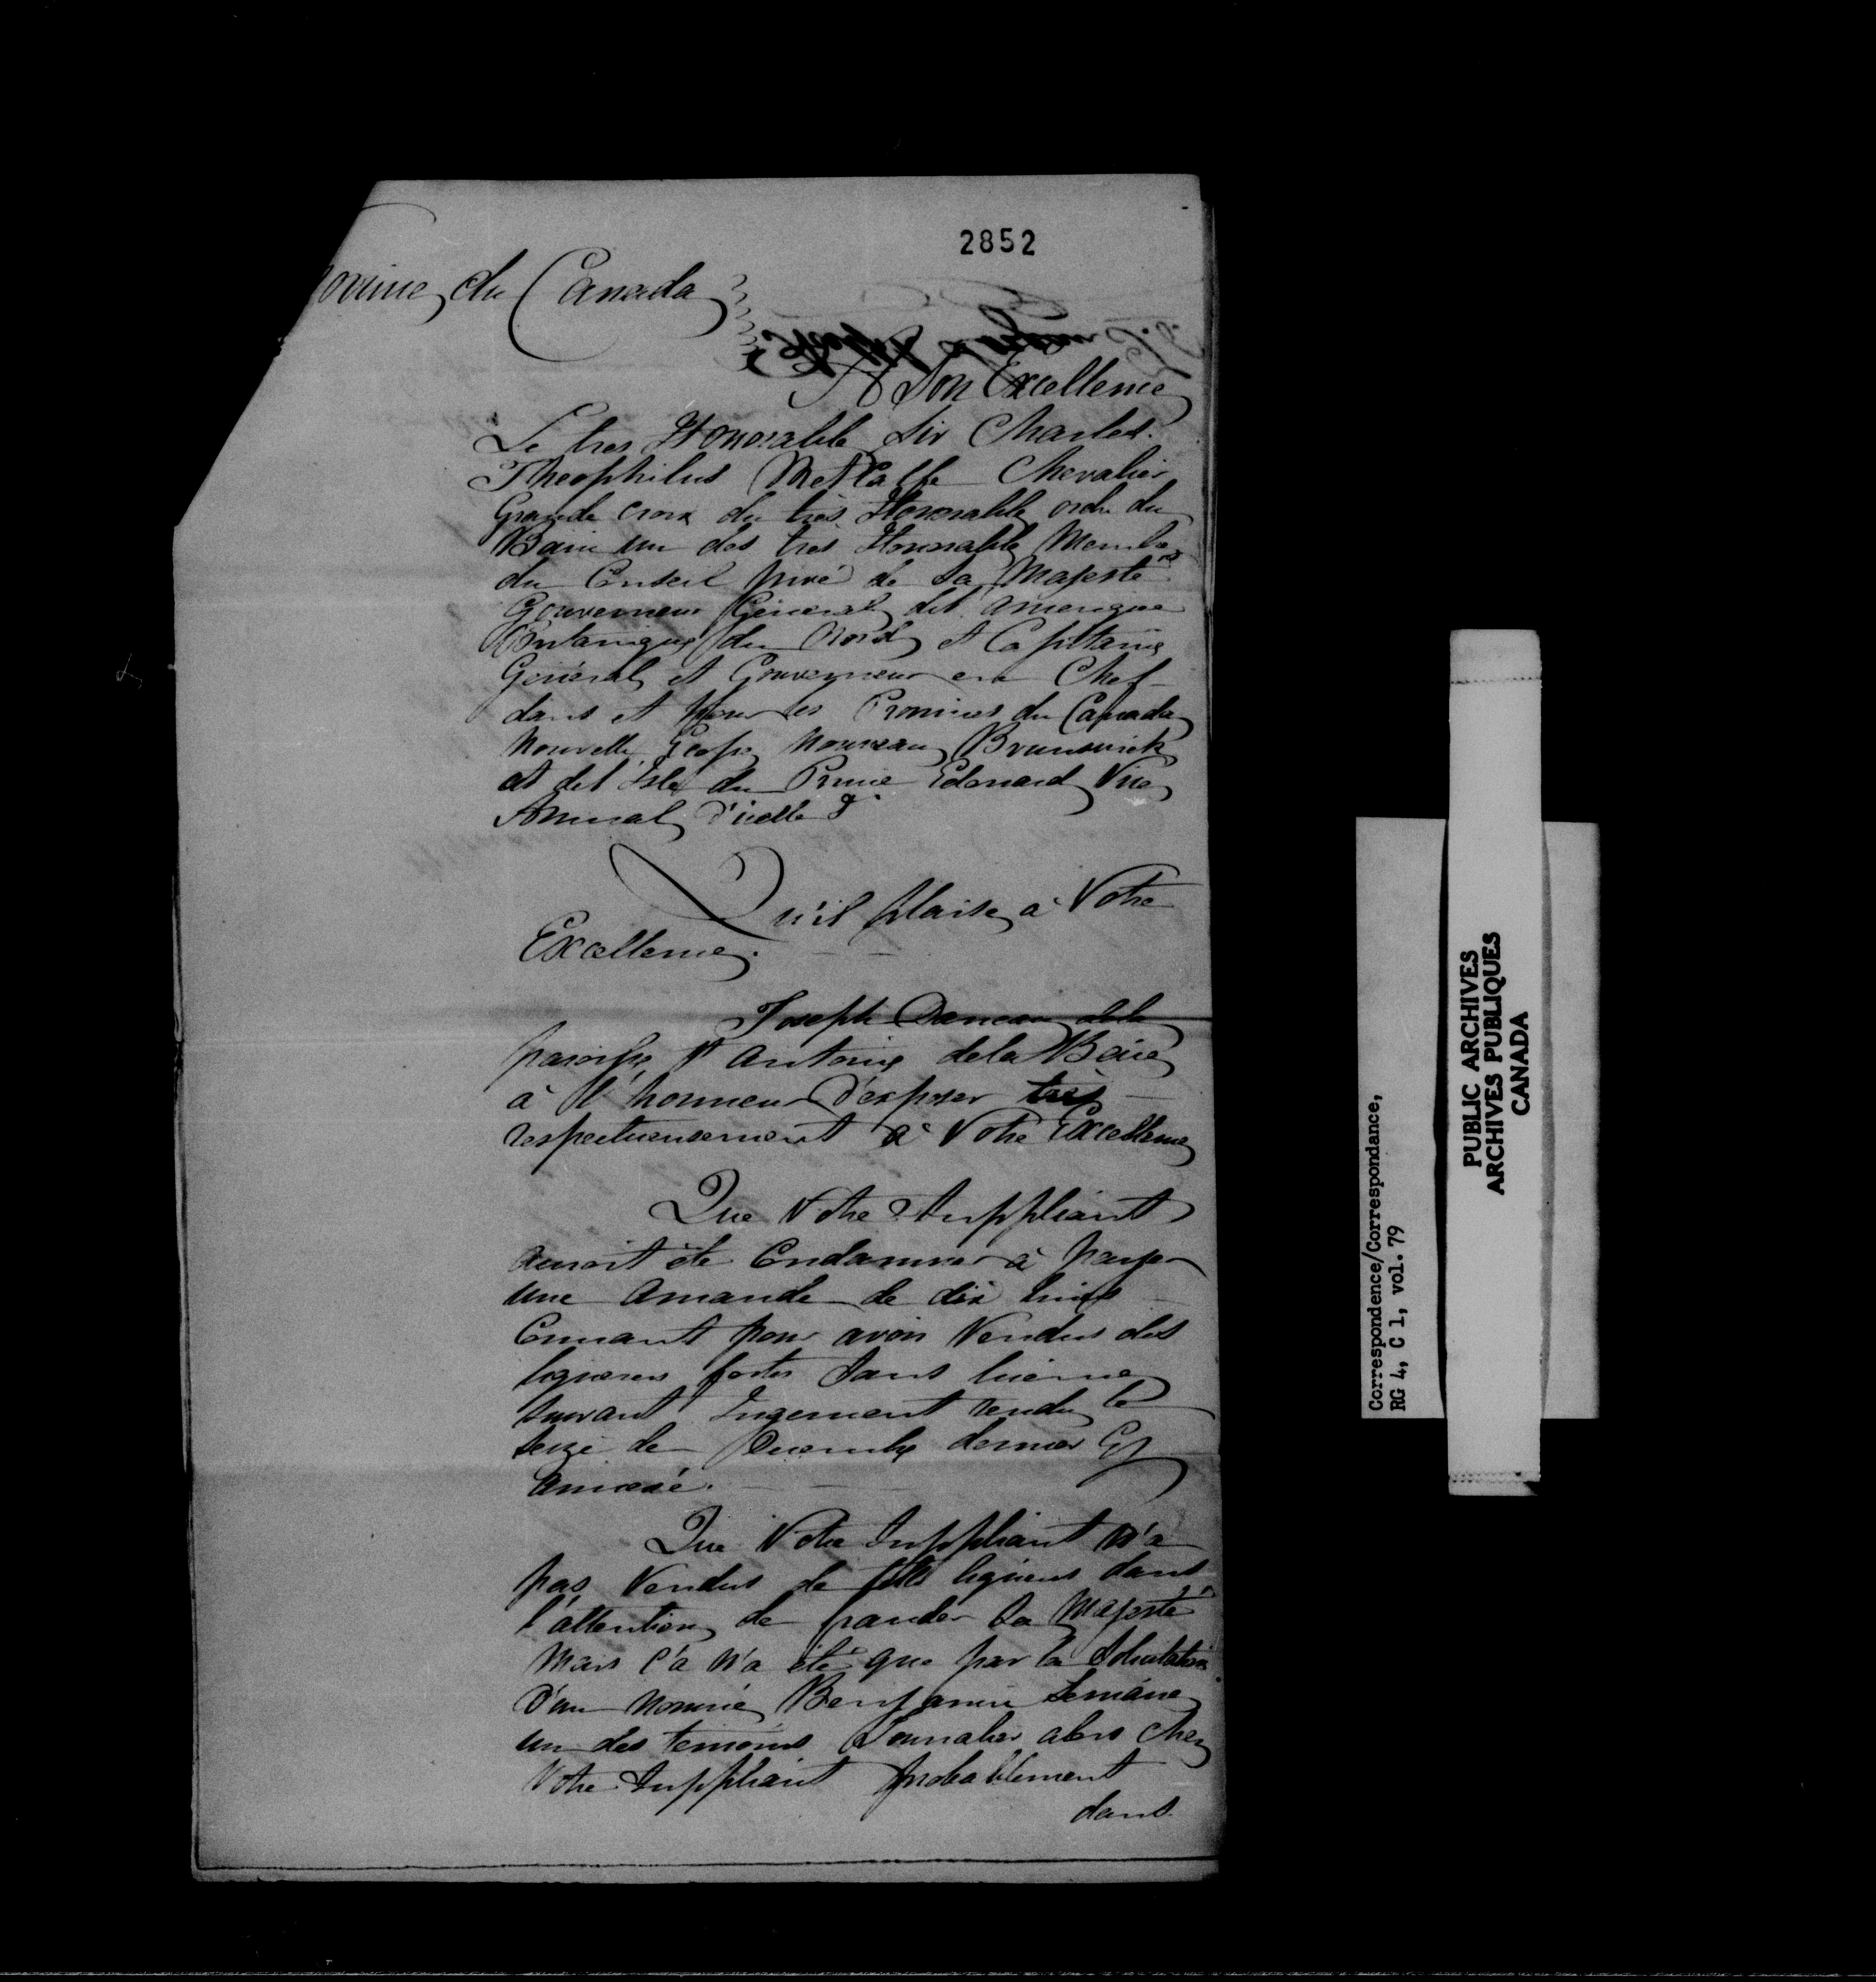 2852
ovince du Canada
A Son Excellence
Le tres Honorable Sir Charles
Theophilus MetCalfe Chevalier
Grande Croix du très Honorable ordre du
Bain un des tres Honorable Membres
du Conseil privé de Sa Majesté
Gouverneur Général del'amerique
Britanique du Nord et Capitaine
Général et Gouverneur en Chef
dans et pour les Provinces du Canada
Nouvelle Ecosse Nouveau Brunswick
et del'Isle du Prince Edouard Vice
Amiral d'icelle &
Qu'il plaise à Votre
Excellence.
Joseph Daneau dela
paroisse St Antoine dela Baie
à l'honneur d'exposer très
respectueusement à Votre Excellence
Que Votre Suppliant
auroit été Condamner à payer
une Amande de dix louis
Courant pour avoir Vendus des
liqueurs fortes Sans licence
Suivant Jugement rendu le
seize de Decembre dernier
annexé.
Que Votre Suppliant n'a
pas Vendus de telle liqueurs dans
l'attention de frauder Sa Majesté
Mais c'a n'a été que par la Solicitation
d'un nommé Benjamin
un des temoins Journalier alors Chez
Votre Suppliant probablement
dans
Correspondence/Correspondance,
RG 4, C 1, vol. 79
PUBLIC ARCHIVES
ARCHIVES PUBLIQUES
CANADA